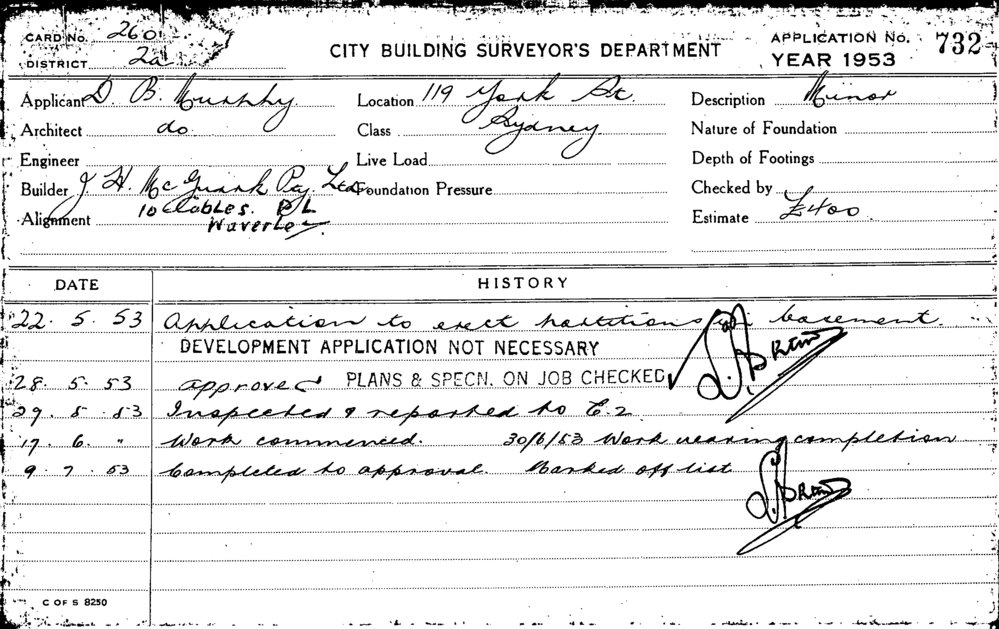 CARD No. 260
DISTRICT 2a
CITY BUILDING SURVEYOR'S DEPARTMENT
APPLICATION No. 732
YEAR 1953
Applicant D. B. Murphy Location 119 York St. Description Minor
Architect do Class Sydney Nature of Foundation
Engineer Live Load Depth of Footings
Builder J H. McGuark Pty. Ltd. Foundation Pressure Checked by
Alignment 10 Ebles. PL Estimate £400
Waverley
DATE HISTORY
22. 5. 53 Application to erect partitions in basement.
DEVELOPMENT APPLICATION NOT NECESSARY
28. 5. 53 approved PLANS & SPECN. ON JOB CHECKED
29. 5. 53 Inspected & reported to E.2
17. 6. " Work commenced. 30/6/53 Work nearing completion
9. 7. 53 Completed to approval. Marked off list
C OF S 8250